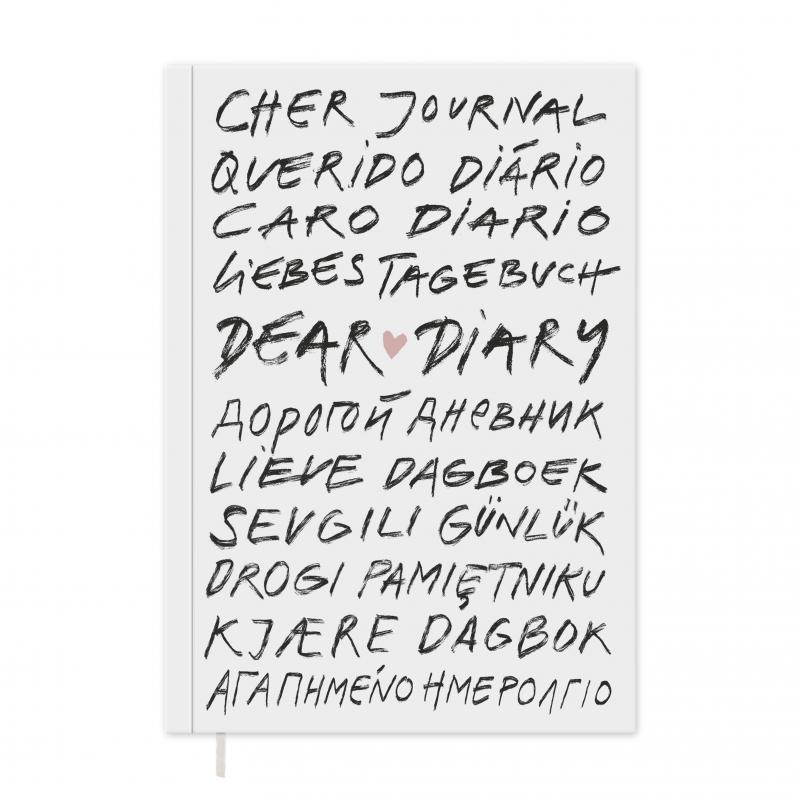 CHER JOURNAL
QUERIDO DIÁRIO
CARO DIARIO
LiEBES TAGEBUCH
DEAR DiARY
ДОРОГОЙ ДНеВНИК
LiEVE DAGBOEK
SEVGILI GÜNLÜK
DROGI PAMIĘTNIKU
KJÆRE DAGBOK
ΑΓΑΠΗΜΕΝΟ ΗΜΕΡΟΛΓΙΟ